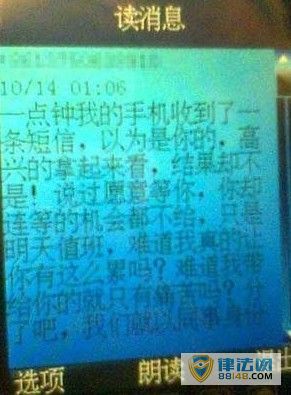 读消息
10/14 01:06
一点钟我的手机收到了一
条短信,以为是你的,高
兴的拿起来看,结果却不
是!说过愿意等你,你却
连等的机会都不给,只是
明天值班,难道我真的让
你有这么累吗?难道我带
给你的就只有痛苦吗?
了吧,我们就以同事
选项
朗读
退出
律法网
88148.com